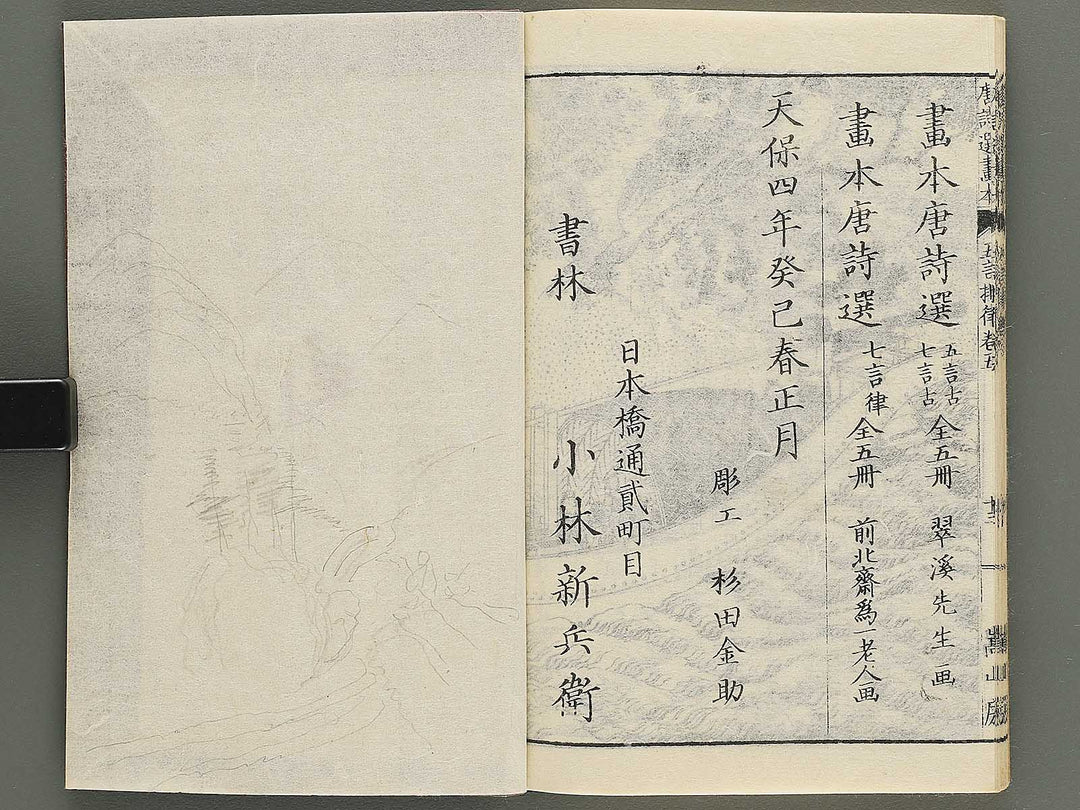 唐詩選畫本 五言排律 卷五
十三
嵩山房
畫本唐詩選 五言古 七言古 全五冊 翠溪先生画
畫本唐詩選 七言律 全五冊 前北齋為一老人画
天保四年癸巳春正月
彫工 杉田金助
日本橋通貳町目
書林 小林新兵衛